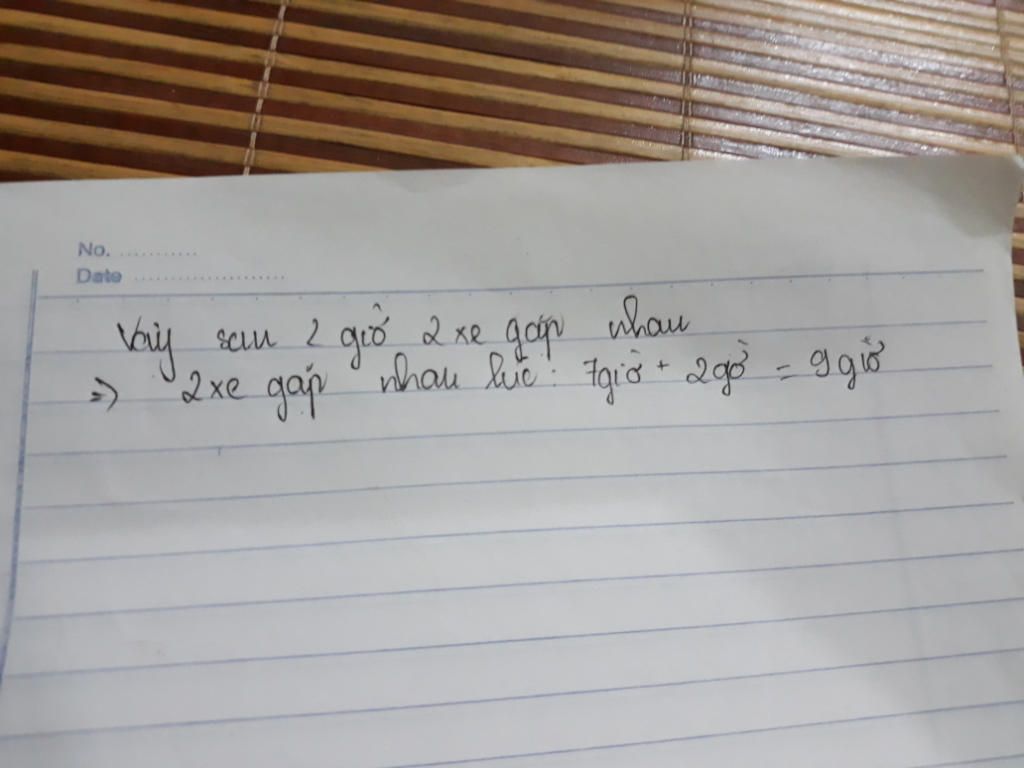 No. ...........
Date .....................
Vậy sau 2 giờ 2 xe gặp nhau
=> 2 xe gặp nhau lúc: 7giờ + 2gờ = 9 giờ